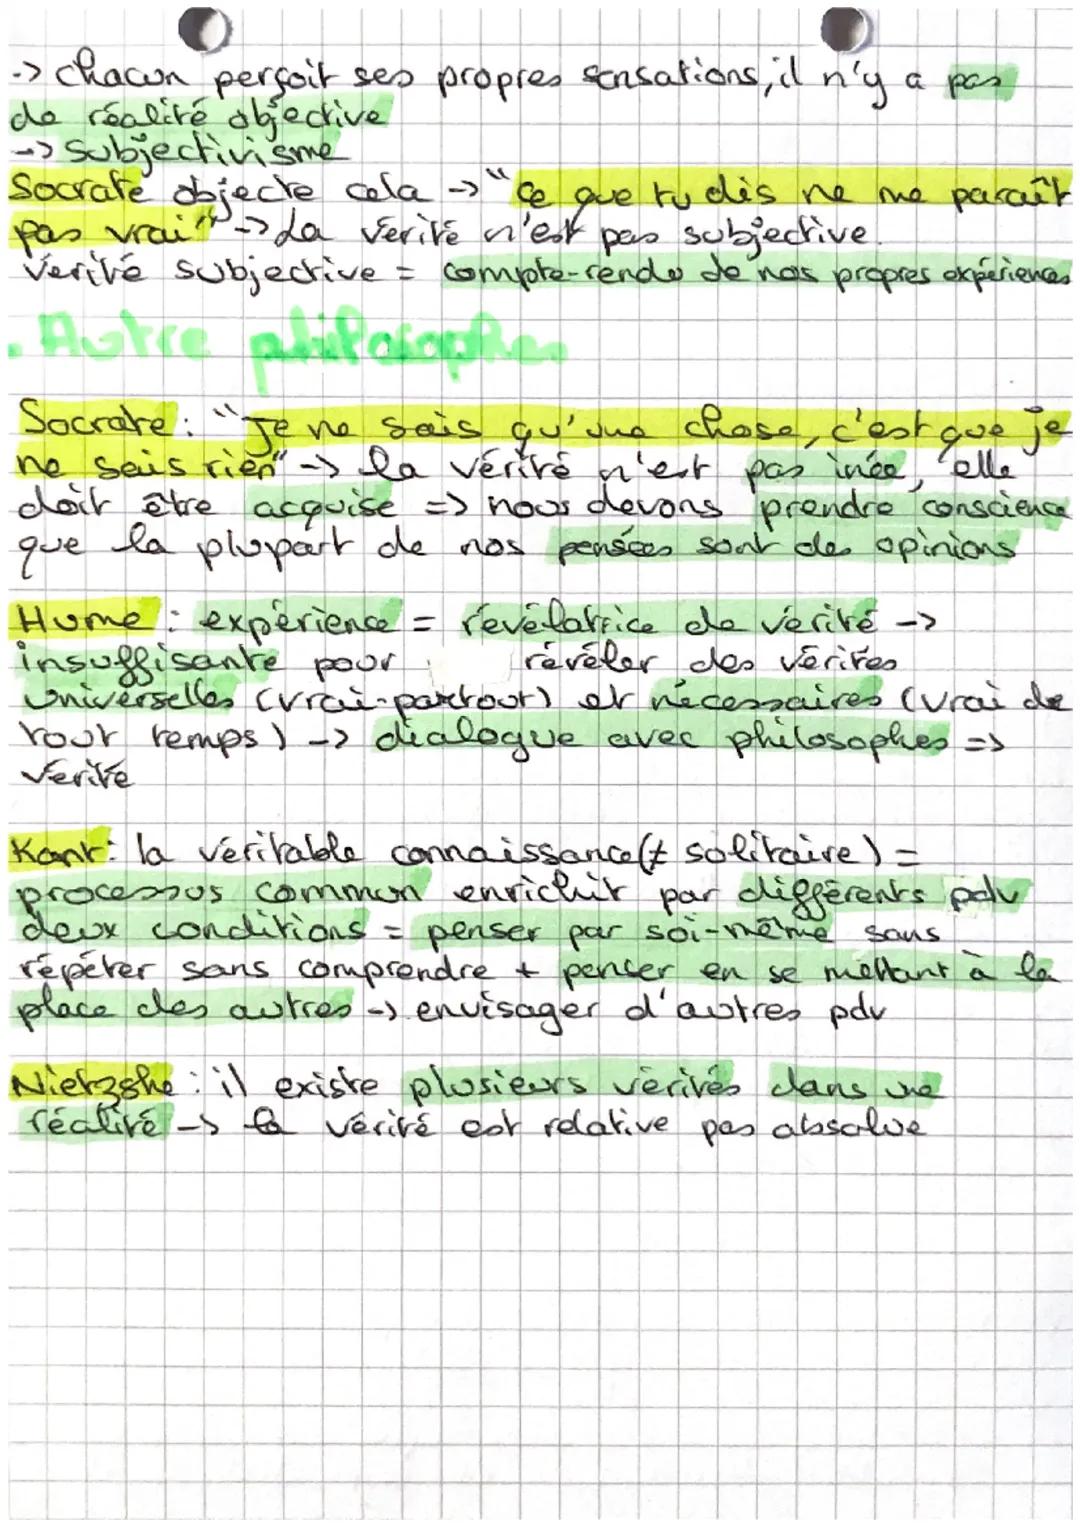 -> chacun perçoit ses propres sensations, il n'y a pas
de réalité objective
-> subjectivisme
Socrate objecte cela -> "ce que tu dis ne me paraît
pas vrai" -> La vérité n'est pas subjective.
Vérité subjective = compte-rendu de nos propres expériences
. Autre philosophes
Socrate : "Je ne sais qu'une chose, c'est que je
ne sais rien" -> la vérité n'est pas inée, elle
doit être acquise => nous devons prendre conscience
que la plupart de nos pensées sont des opinions
Hume : expérience = révélatrice de vérité ->
insuffisante pour révéler des vérités
universelles (vrai-partout) et nécessaires (vrai de
tout temps) -> dialogue avec philosophes =>
vérité
Kant : la véritable connaissance (≠ solitaire) =
processus commun enrichit par différents pdv
deux conditions = penser par soi-même sans
répéter sans comprendre + penser en se mettant à la
place des autres -> envisager d'autres pdv
Nietzshe : il existe plusieurs vérités dans une
réalité -> la vérité est relative pas absolue